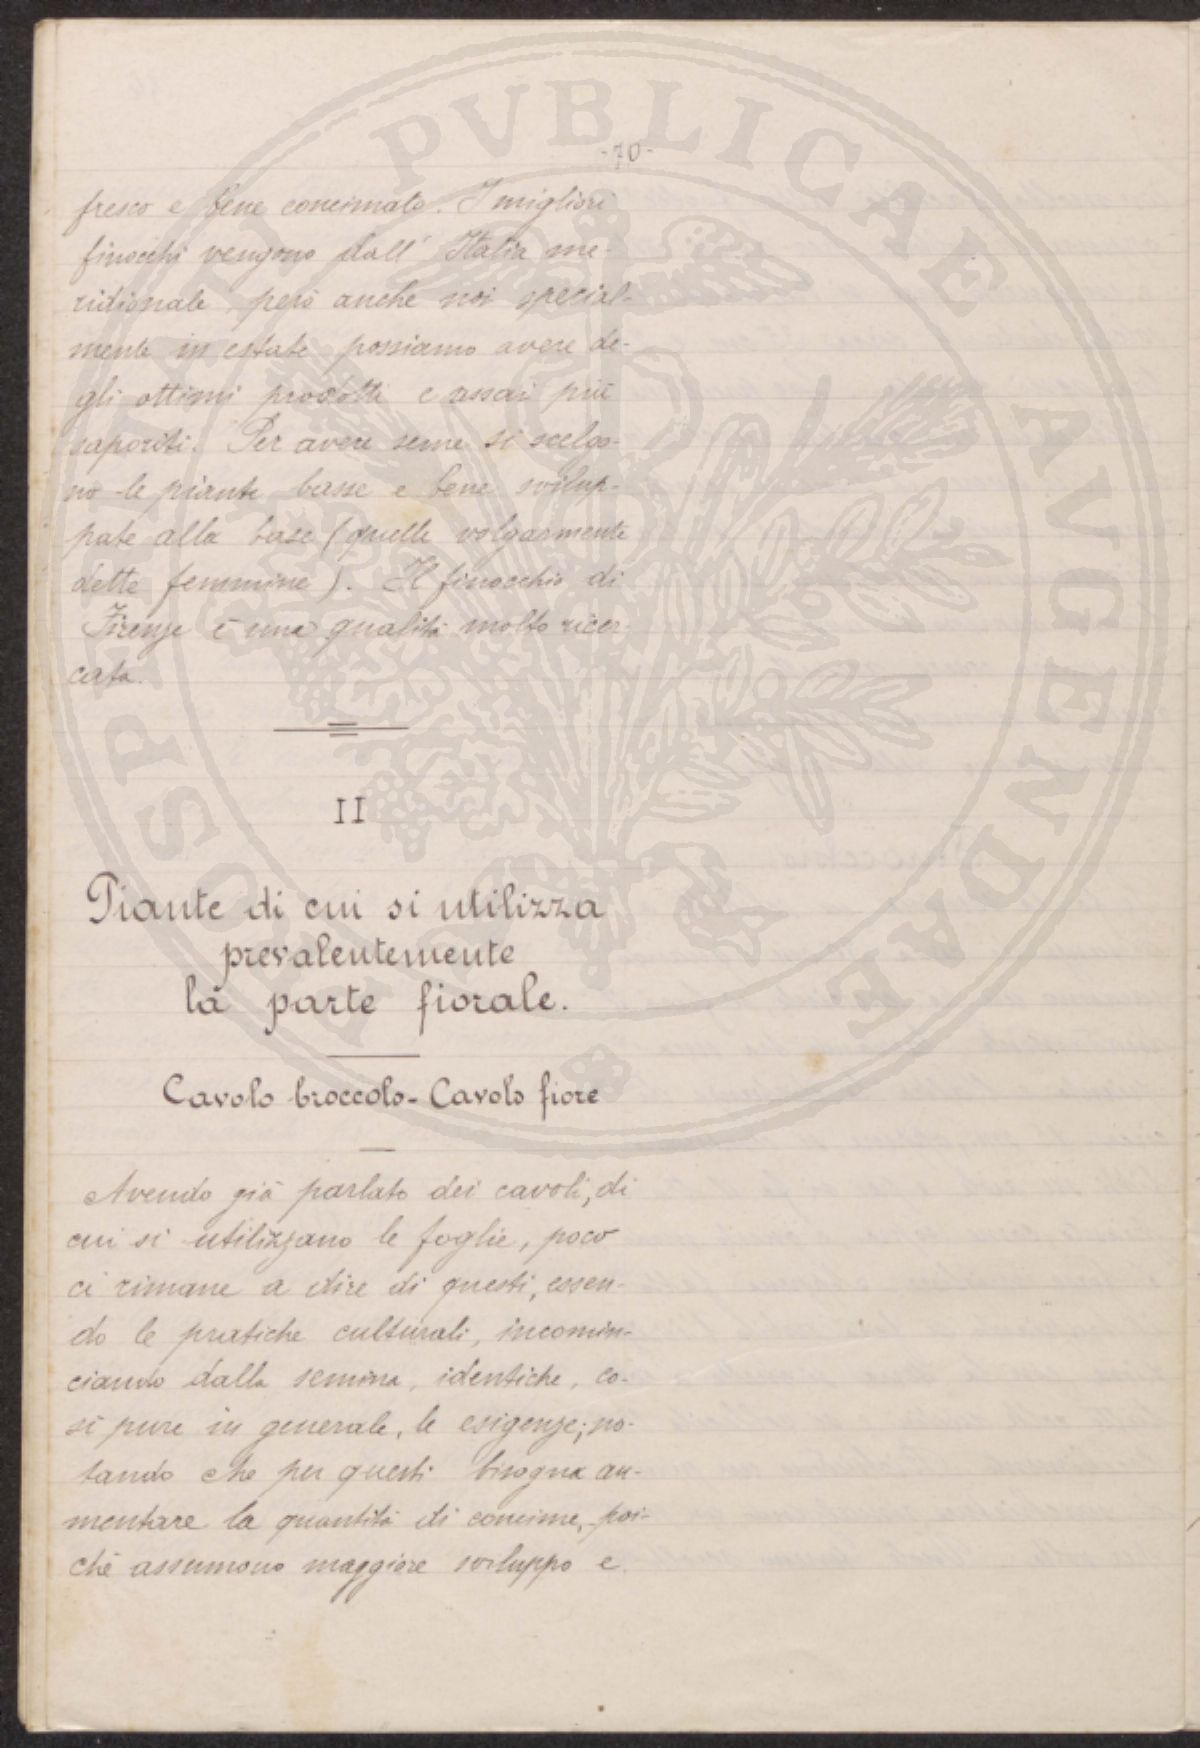 -70-
fresco e bene concimato. I migliori
finocchi vengono dall' Italia me-
ridionale, però anche noi special-
mente in estate possiamo avere de-
gli ottimi prodotti e assai più
saporiti. Per avere seme si scelgo-
no le piante basse e bene svilup-
pate alla base (quelle volgarmente
dette femmine). Il finocchio di
Firenze è una qualità molto ricer-
cata.
II
Piante di cui si utilizza
prevalentemente
la parte fiorale.
Cavolo broccolo - Cavolo fiore
Avendo già parlato dei cavoli, di
cui si utilizzano le foglie, poco
ci rimane a dire di questi, essen-
do le pratiche culturali, incomin-
ciando dalla semina, identiche, co-
sì pure in generale, le esigenze; no-
tando che per questi bisogna au-
mentare la quantità di concime, poi-
chè assumono maggiore sviluppo e
PVBLICAE AVGENDAE